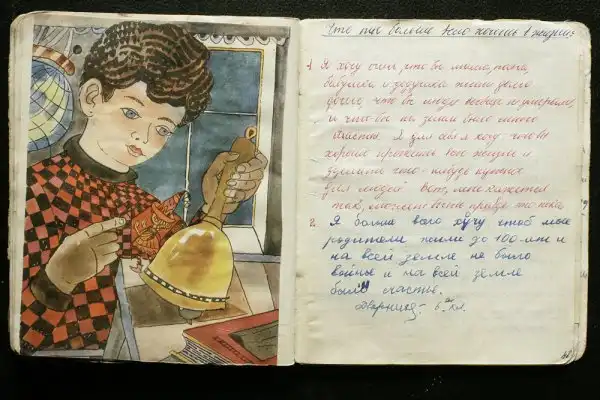 Что ты больше всего хочешь в жизни?
1. Я хочу очень, что бы мама, папа,
бабушка и дедушка жили долго
долго, что бы люди не умирали,
и что бы на земле было много
счастья. Я для себя хочу что бы
хорошо прожить всю жизнь и
сделать что-нибудь нужное
для людей. Вот, мне кажется
так, может быть правда это пока.
2. Я больше всего хучу чтоб мои
родители жили до 100-лет и
на всей земле не было
войны и на всей земле
было счастье.
6 кл.